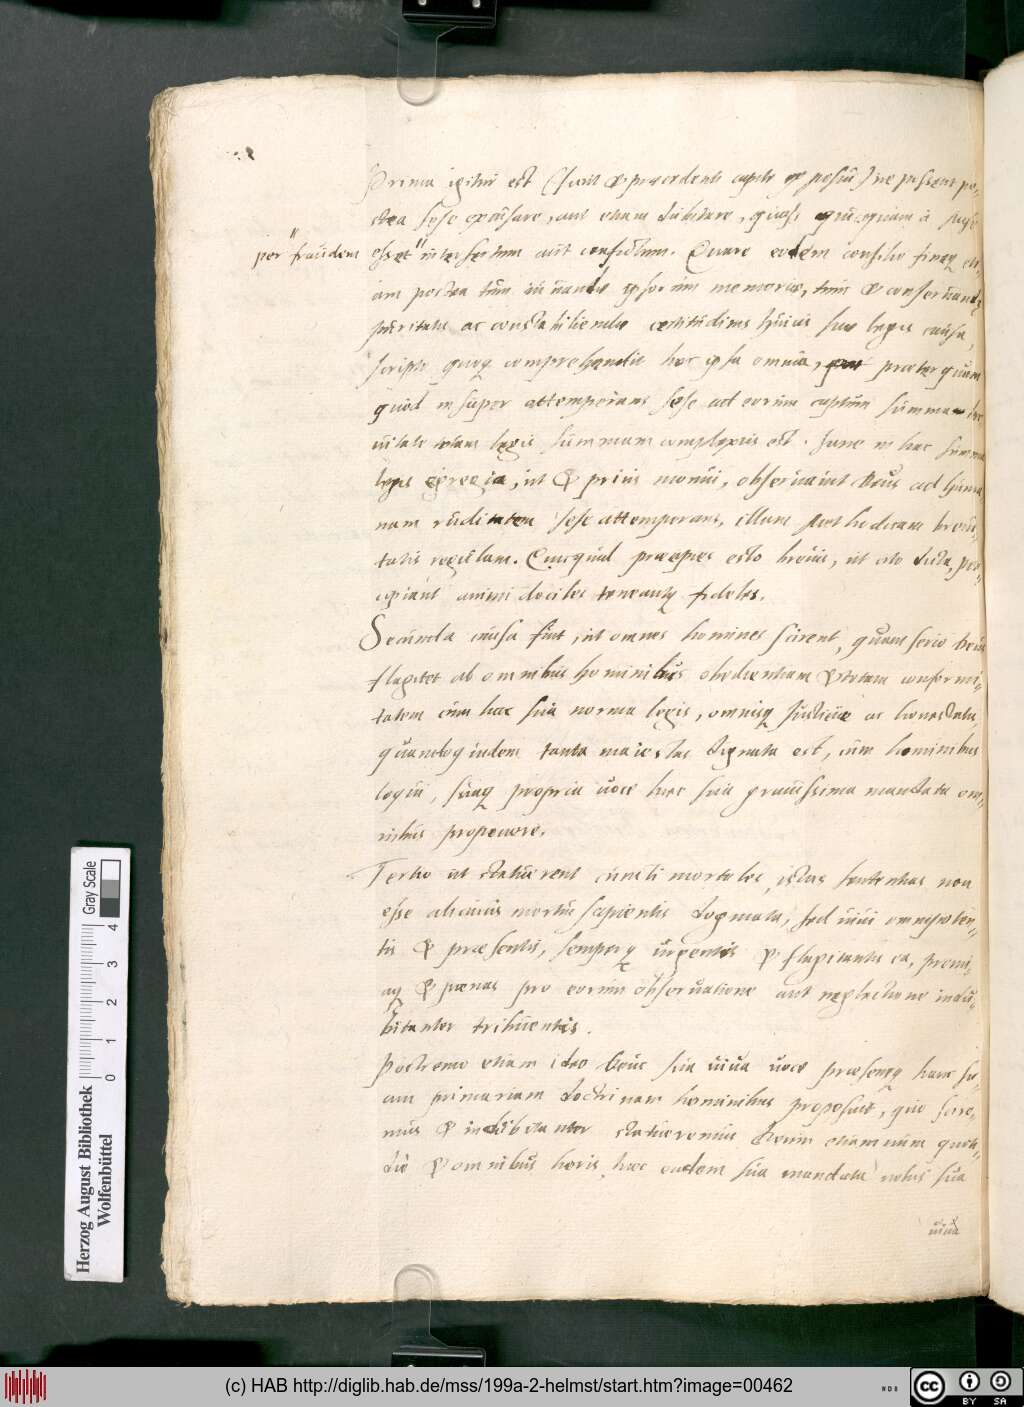 Prima igitur est (sunt & praecedenti capite exposui) ne possent po-
stea sese excusare, aut etiam dubitare, quasi quicquam à Mose
per fraudem
esset interfertum aut confictum. Quare eodem consilio fineq eti-
am postea tum iuuandae ipsorum memoriae, tum & conseruandae
puritatis ac constabiliendae certitudinis huius suae legis causa,
scripto quoq comprehendit haec ipsa omnia, praeterquam
quod insuper attemperans sese ad eorum captum summam bre
uitate totam legis summam complexus est. Sane in hac summa
legis egregia, ut & prius monui, obseruauit Deus ad huma
nam ruditatem sese attemperans, illam Methodicam breui-
tatis regulam. Quicquid praecipies esto breuis, ut cito dicta, per-
cipiant animi dociles teneantq fideles.
Secunda causa fuit, ut omnes homines scirent, quam serio Deus
flagitet ab omnibus hominibus obedientiam & totam conformi-
tatem cum hac sua norma legis, omnisq Justiciae ac honestatis,
quandoquidem tanta maiestas dignata est, cum hominibus
loqui, suaq propria uoce haec sua grauissima mandata om-
nibus proponere.
Tertio ut statuerent cuncti mortales, istas sententias non
esse alicuius mortui sapientis dogmata, sed uiui omnipoten-
tis & praesentis, semperq urgentis & flagitantis ea, premi-
aq & poenas pro eorum obseruatione aut neglectione indu-
bitanter tribuentis.
Postremo etiam ideo Deus sua uiua uoce praesensq hanc su-
am primariam doctrinam hominibus proposuit, quo scire-
mus & indubitanter statueremus Deum etiamnum quoti-
die & omnibus horis haec eadem sua mandata nobis sua
uiua
Herzog August Bibliothek
Wolfenbüttel
0 1 2 3 4
Gray Scale
(c) HAB http://diglib.hab.de/mss/199a-2-helmst/start.htm?image=00462
cc BY SA